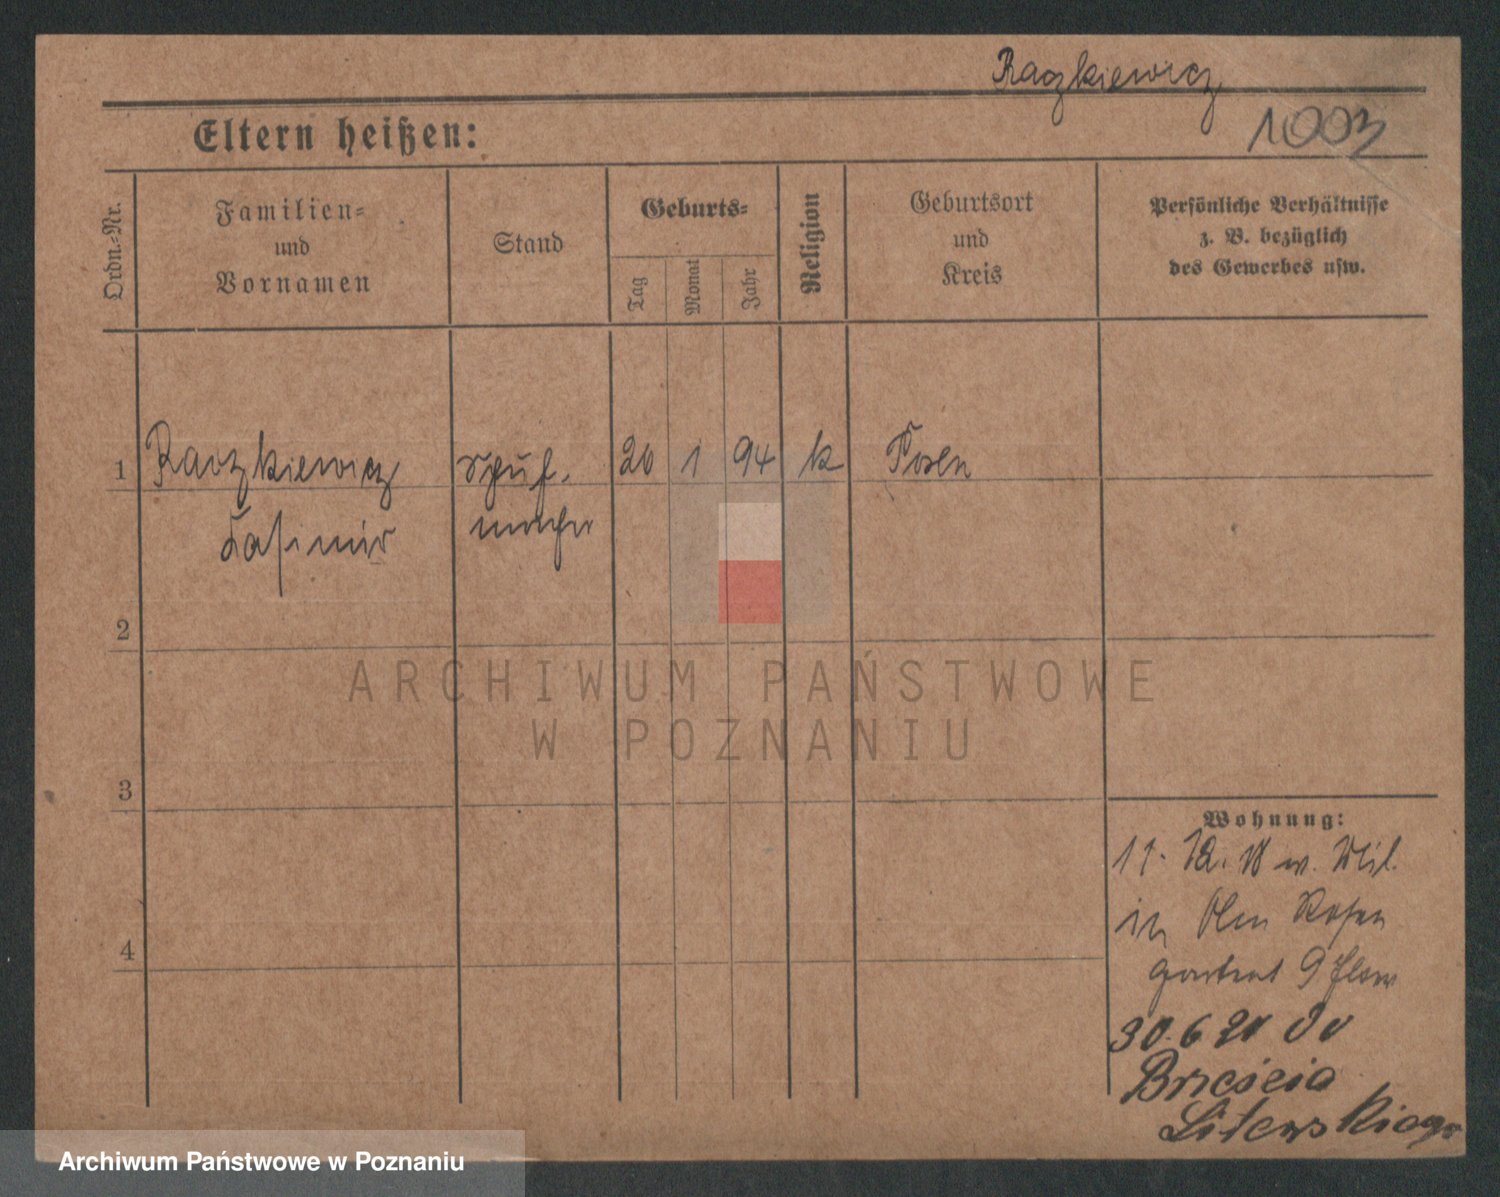 Raczkiewicz
1003
Eltern heißen:
Ordn.=Nr.
Familien=
und
Vornamen
Stand
Geburts=
Tag
Monat
Jahr
Religion
Geburtsort
und
Kreis
Persönliche Verhältnisse
z. B. bezüglich
des Gewerbes usw.
1 Raczkiewicz Schuh- 20 1 94 k Posen
Kasimir macher
2
3
4
Wohnung:
in
30.6 21
Brześcia
Litewskiego
ARCHIWUM PAŃSTWOWE
W POZNANIU
Archiwum Państwowe w Poznaniu